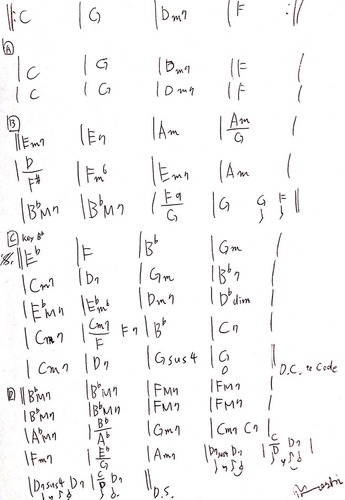 ‖: C | G | Dm7 | F :‖
A
| C | G | Dm7 | F |
| C | G | Dm7 | F |
B
‖ Em7 | E7 | Am | Am/G |
| D/F# | Fm6 | Em7 | Am |
| BbM7 | BbM7 | F9/G | G G F ‖
C key Bb
‖ Eb | F | Bb | Gm |
| Cm7 | D7 | Gm | Bb7 |
| EbM7 | Ebm6 | Dm7 | Dbdim |
| Cm7 | Cm7/F F7 | Bb | C7 |
| Cm7 | D7 | Gsus4 | G ‖ D.C. to Code
D ‖ BbM7 | BbM7 | FM7 | FM7 |
| BbM7 | BbM7 | FM7 | FM7 |
| AbM7 | Bb/Ab | Gm7 | Cm7 C7 |
| Fm7 | Eb/G | Am7 | D7sus4 D7 | C/D D7 |
| D7sus4 D7 | C/D D7 ‖ D.S.